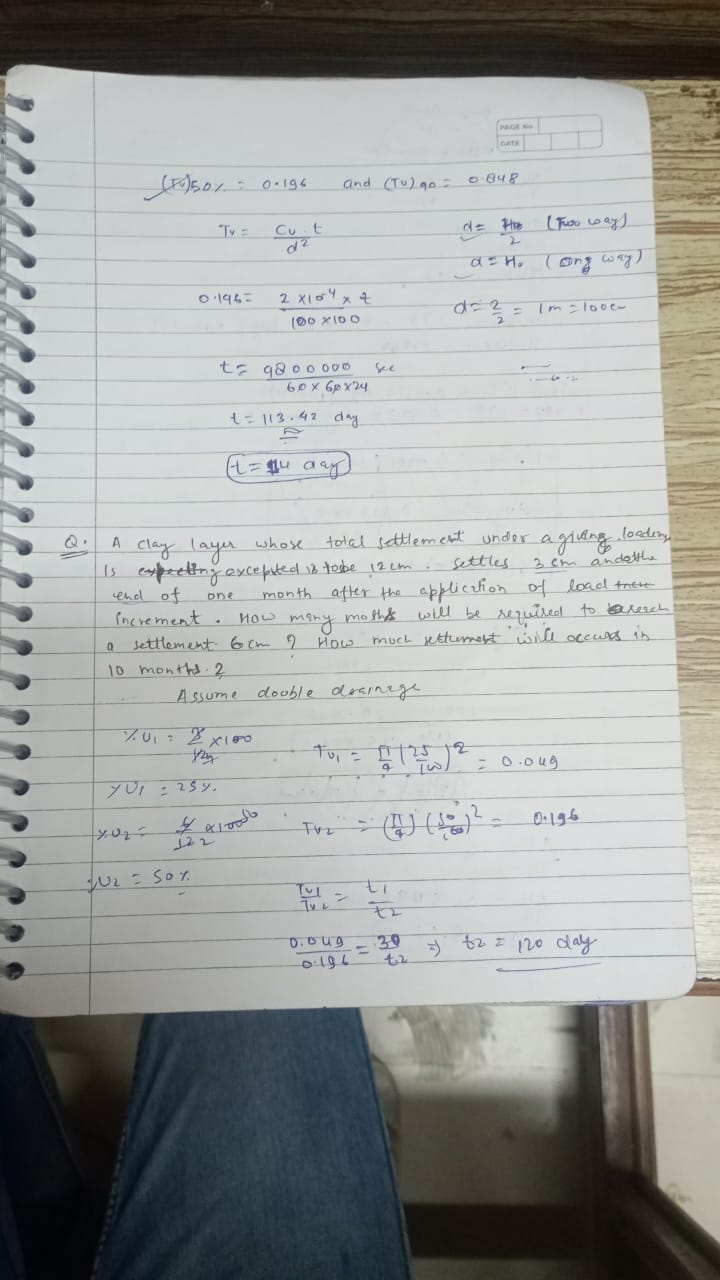 PAGE No
DATE
(Tv)50% = 0.196 and (Tv)90 = 0.848
Tv = Cv t / d² d = H0/2 (Two way)
d = H0 (ong way)
0.196 = 2 x 10⁻⁴ x t / 100 x 100 d = 2/2 = 1m = 100cm
t = 9800000 sec / 60 x 60 x 24
t = 113.42 day
t = 114 day
Q. A clay layer whose total settlement under a giving loading
is excepted is to be 12 cm. settles 3 cm and the
end of one month after the application of load
increment. How many moths will be required to reach
a settlement 6 cm ? How much settlement will occurs in
10 months. ?
Assume double drainage
%U1 = 3/12 x 100 Tv1 = π/4 (25/100)² = 0.049
%U1 = 25%
%U2 = 6/12 x 100 Tv2 = (π/4) (50/100)² = 0.196
%U2 = 50%
Tv1/Tv2 = t1/t2
0.049/0.196 = 30/t2 ⇒ t2 = 120 day